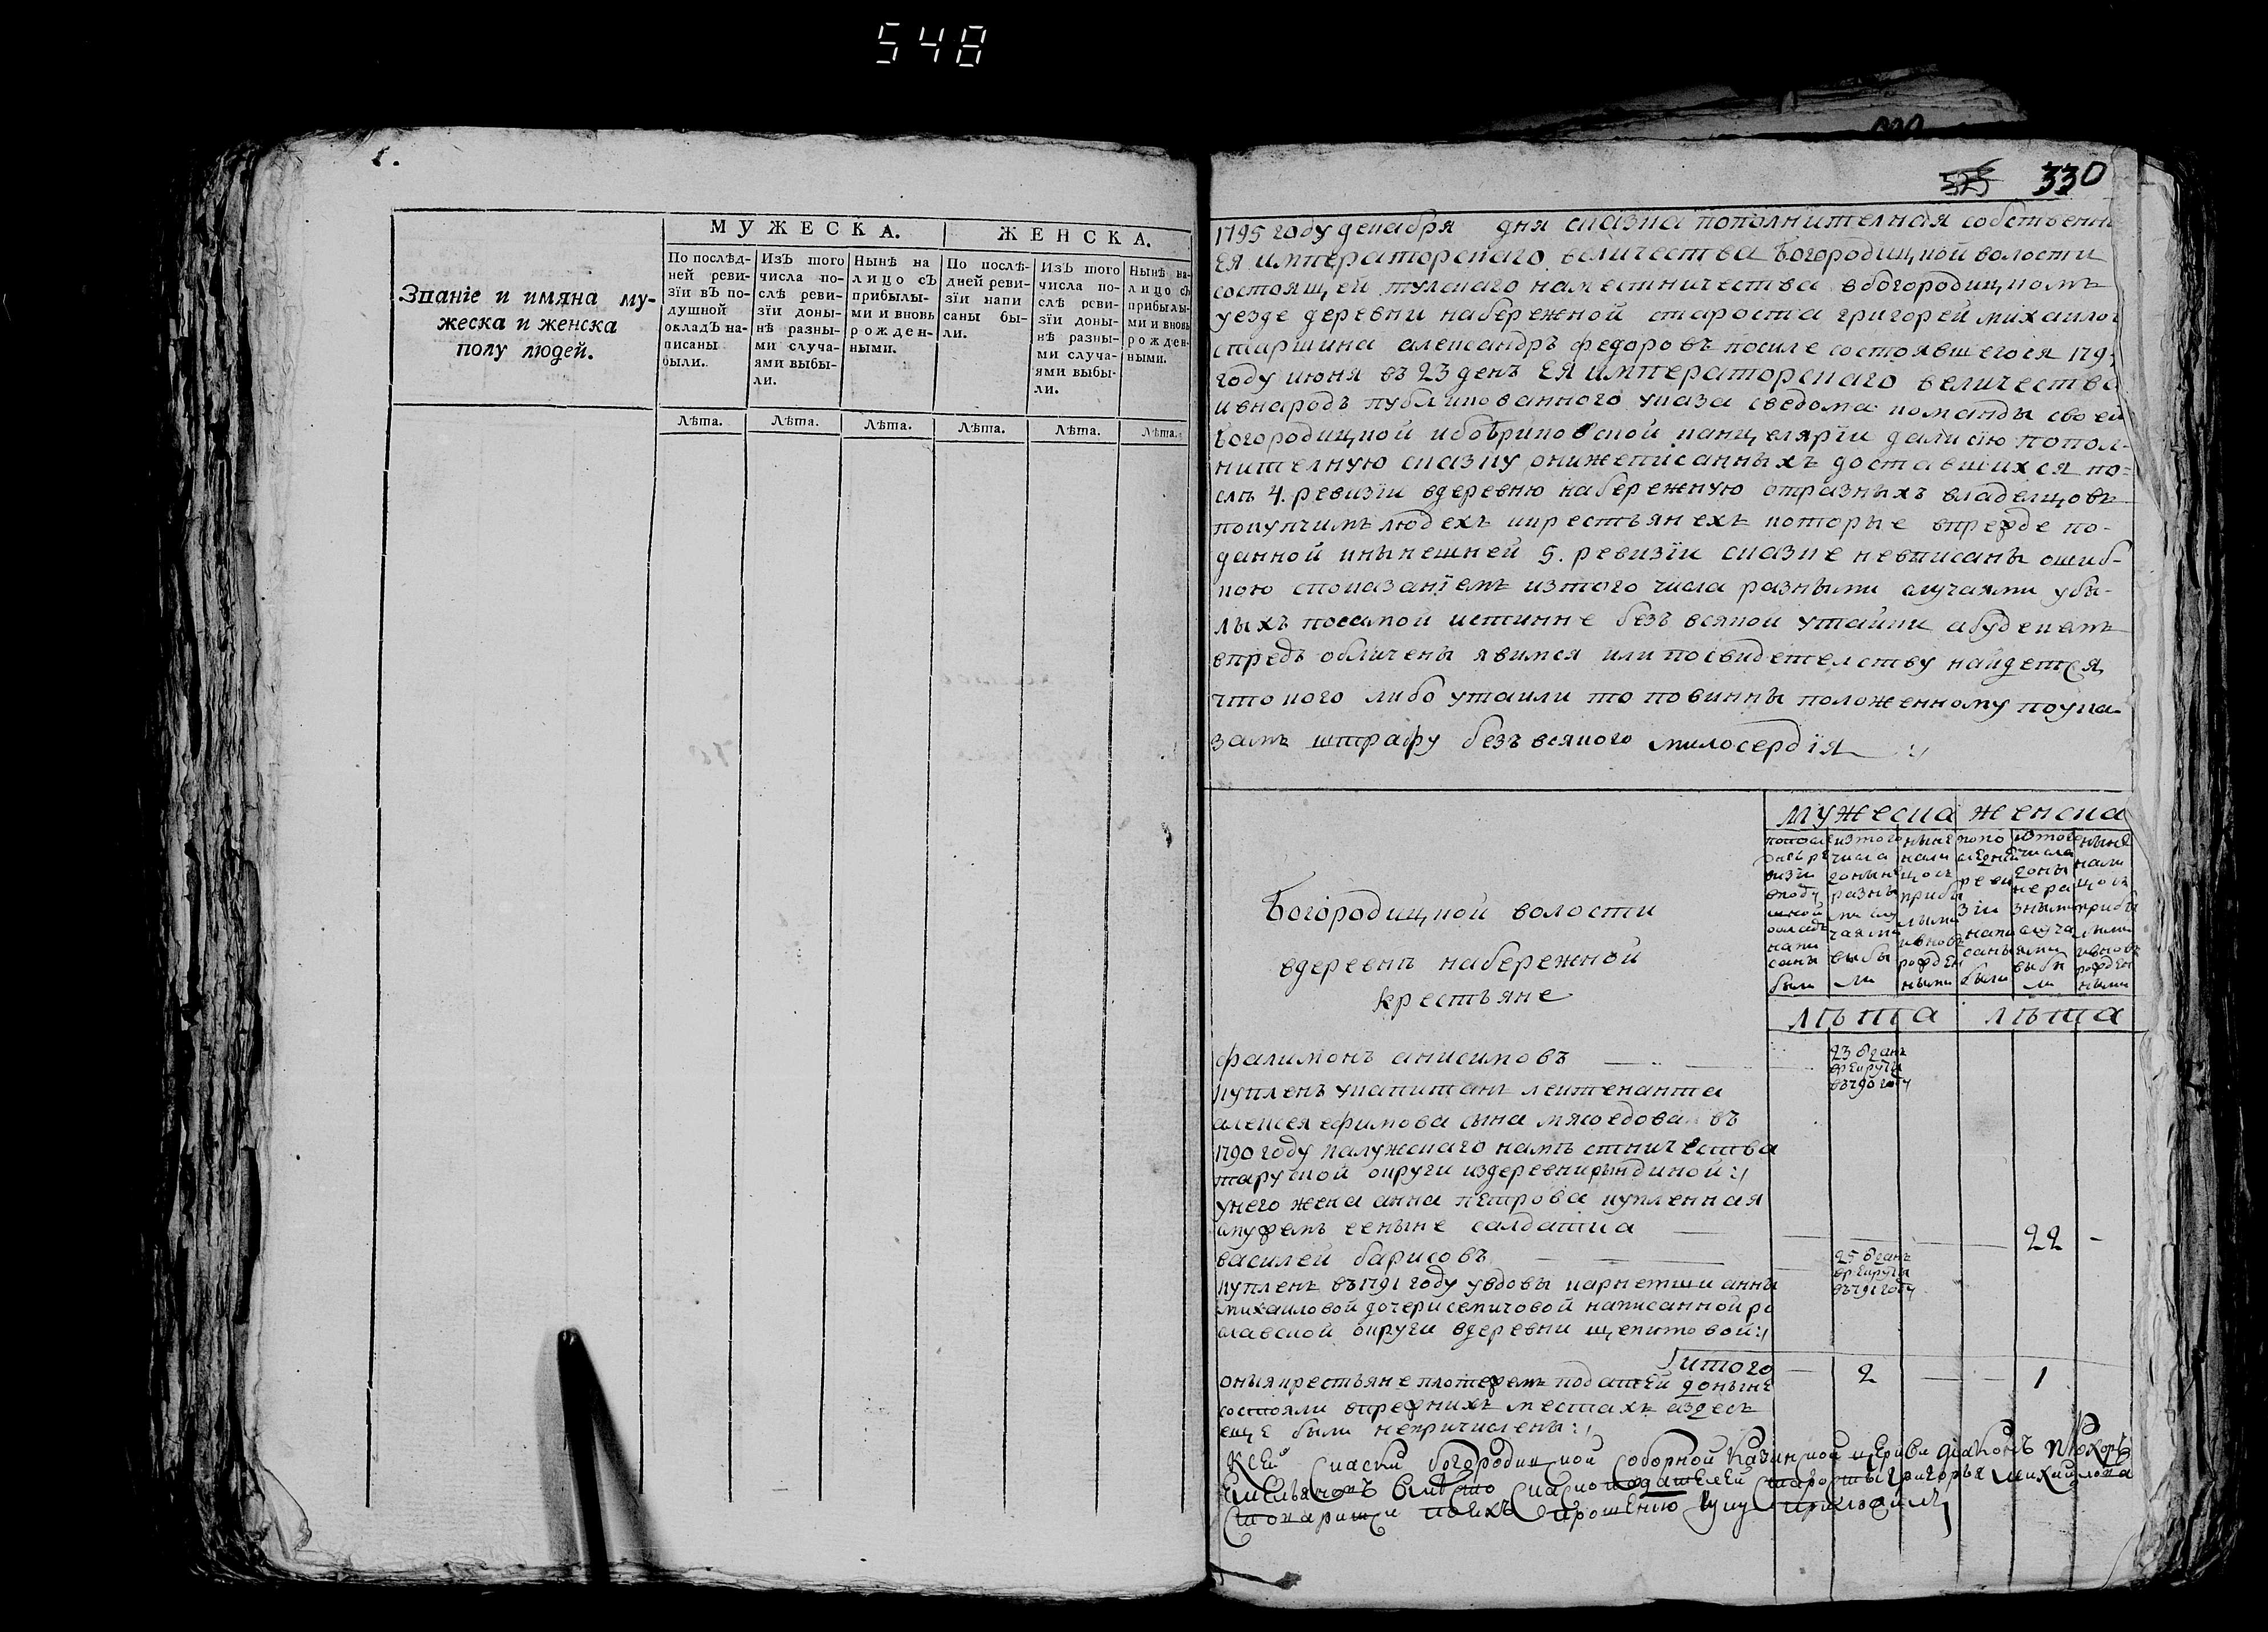 548
1.
М У Ж Е С К А.
Ж Е Н С К А.
Званіе и имяна му-
жеска и женска
полу людей.
По послѣд-
ней реви-
зїи вЪ по-
душной
окладЪ на-
писаны
были.
ИзЪ того
числа по-
слѣ реви-
зїи доны-
нѣ разны-
ми случа-
ями выбы-
ли.
Нынѣ на
лицо сЪ
прибылы-
ми и вновь
рожден-
ными.
По послѣ-
дней реви-
зїи напи
саны бы-
ли.
ИзЪ того
числа по-
слѣ реви-
зїи доны-
нѣ разны-
ми случа-
ями выбы-
ли.
Нынѣ на-
лицо сЪ
прибылы-
ми и вновь
рожден-
ными.
Лѣта. Лѣта. Лѣта. Лѣта. Лѣта. Лѣта.
330
1795 году декабря дня сказка пополнителная собственн
Ея императорскаго величества Богородицкой волости
состоящей тулскаго наместничества вбогородицкомъ
уезде деревни набережной староста григорей михаилов
старшина александръ федоровъ посиле состоявшегося 179
году июня въ 23 денъ Ея императорскаго величества
ивнародъ публикованного указа сведома команды своей
Богородицкой ибобриковской канцелярїи дали сїю попол-
нителную сказку онижеписанныхъ доставшихся по=
слѣ 4. ревизїи вдеревню набережную отразныхъ владелцовъ
покупкимъ людехъ икрестьянехъ которые впрежде по-
данной инынешней 5. ревизїи сказке невписаны ошиб-
кою споказанїемъ изтого числа разными случаями убы-
лыхъ посамой истинне безъ всякой утайки абуде кемъ
впредъ обличены явимся или посвидетелству найдется
что кого либо утаили то повинны положенному поука
замъ штрафу безъ всякого милосердїя :,
мужеска женска
попосле
дней ре
визїи
вподу
шной
окладъ
напи
саны
были
изтого
числа
донынѣ
разны
ми слу
чаями
выбы
ли
ныне
нали
цо съ
прибы
лыми
ивновь
рожден
ными
попо
следней
реви
зїи
напи
саны
были
изтого
числа
доны
не ра
зными
случа
ями
выбы
ли
ныне
нали
цо съ
прибы
лыми
ивновь
рожден
ными
лѣта лѣта
Богородицкой волости
вдеревнѣ набережной
крестьяне
фалимонъ анисимовъ 23 отданъ
врекруты
въ790 году
купленъ укапитанъ леитенанта
алексея ефимова сына мясоедова въ
1790 году калужскаго намѣстничества
тарускои округи издеревни рындиной :,
унего жена анна петрова купленная
смужемъ ееныне салдатка 22 -
василей барисовъ 25 отданъ
врекруты
въ791 году
купленъ въ1791 году увдовы карнетши анны
михаиловой дочери селичовой написанной ро
славской округи вдеревни щекотовой :,
итого 2 1
оныя крестьяне платежемъ податей донынѣ
состояли впрежнихъ местахъ аздесъ
еще были непричислены :,
Ксей Скаски богородицкой Соборной Казинской церкви диаконъ Прохоръ
Емельяновъ вместо скаско подателей старосты григорья михайлова
Стоварищи поихъ прошению руку приложилъ